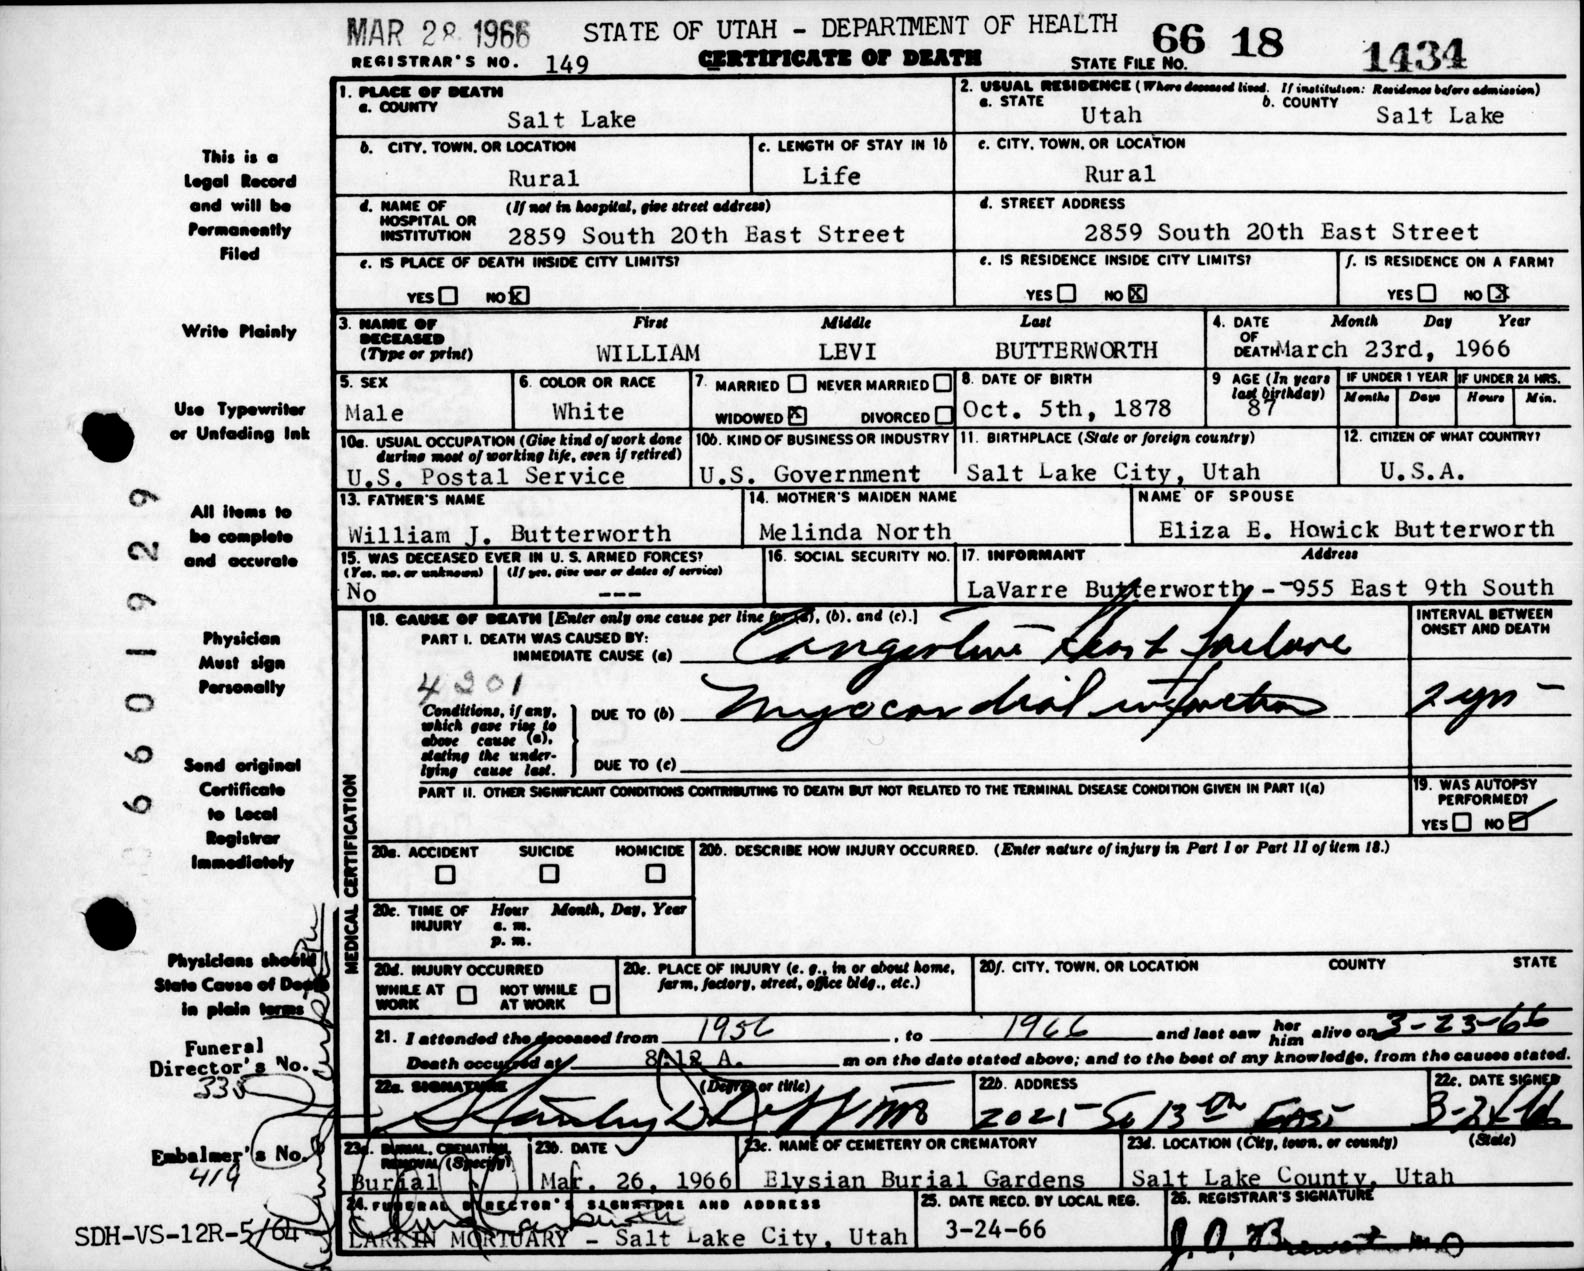 MAR 28 1966 STATE OF UTAH – DEPARTMENT OF HEALTH 66 18 1434
REGISTRAR'S NO. 149 CERTIFICATE OF DEATH STATE FILE NO.
1. PLACE OF DEATH
a. COUNTY
Salt Lake
2. USUAL RESIDENCE (Where deceased lived. If institution: Residence before admission)
a. STATE b. COUNTY
Utah Salt Lake
b. CITY, TOWN, OR LOCATION
Rural
c. LENGTH OF STAY IN 1b
Life
c. CITY, TOWN, OR LOCATION
Rural
d. NAME OF HOSPITAL OR INSTITUTION (If not in hospital, give street address)
2859 South 20th East Street
d. STREET ADDRESS
2859 South 20th East Street
e. IS PLACE OF DEATH INSIDE CITY LIMITS?
YES NO X
e. IS RESIDENCE INSIDE CITY LIMITS?
YES NO X
f. IS RESIDENCE ON A FARM?
YES NO X
3. NAME OF DECEASED (Type or print)
First Middle Last
WILLIAM LEVI BUTTERWORTH
4. DATE OF DEATH Month Day Year
March 23rd, 1966
5. SEX
Male
6. COLOR OR RACE
White
7. MARRIED NEVER MARRIED
WIDOWED X DIVORCED
8. DATE OF BIRTH
Oct. 5th, 1878
9 AGE (In years last birthday)
87
IF UNDER 1 YEAR IF UNDER 24 HRS.
Months Days Hours Min.
10a. USUAL OCCUPATION (Give kind of work done during most of working life, even if retired)
U.S. Postal Service
10b. KIND OF BUSINESS OR INDUSTRY
U.S. Government
11. BIRTHPLACE (State or foreign country)
Salt Lake City, Utah
12. CITIZEN OF WHAT COUNTRY?
U.S.A.
13. FATHER'S NAME
William J. Butterworth
14. MOTHER'S MAIDEN NAME
Melinda North
NAME OF SPOUSE
Eliza E. Howick Butterworth
15. WAS DECEASED EVER IN U. S. ARMED FORCES?
(Yes, no, or unknown) (If yes, give war or dates of service)
No ---
16. SOCIAL SECURITY NO.
17. INFORMANT Address
LaVarre Butterworth - 955 East 9th South
MEDICAL CERTIFICATION
18. CAUSE OF DEATH [Enter only one cause per line for (a), (b), and (c).]
INTERVAL BETWEEN ONSET AND DEATH
PART I. DEATH WAS CAUSED BY:
IMMEDIATE CAUSE (a) Congestive Heart failure
4201
Conditions, if any, which gave rise to above cause (a), stating the underlying cause last.
DUE TO (b) Myocardial infarction 2 yrs
DUE TO (c)
PART II. OTHER SIGNIFICANT CONDITIONS CONTRIBUTING TO DEATH BUT NOT RELATED TO THE TERMINAL DISEASE CONDITION GIVEN IN PART I(a)
19. WAS AUTOPSY PERFORMED?
YES NO
20a. ACCIDENT SUICIDE HOMICIDE
20b. DESCRIBE HOW INJURY OCCURRED. (Enter nature of injury in Part I or Part II of item 18.)
20c. TIME OF INJURY Hour Month, Day, Year
a. m.
p. m.
20d. INJURY OCCURRED
WHILE AT WORK NOT WHILE AT WORK
20e. PLACE OF INJURY (e. g., in or about home, farm, factory, street, office bldg., etc.)
20f. CITY, TOWN, OR LOCATION COUNTY STATE
21. I attended the deceased from 1956, to 1966 and last saw her him alive on 3-23-66
Death occurred at 8:12 A. m on the date stated above; and to the best of my knowledge, from the causes stated.
22a. SIGNATURE (Degree or title)
Stanley
22b. ADDRESS
2025 So 13th East
22c. DATE SIGNED
23a. BURIAL, CREMATION, REMOVAL (Specify)
Burial
23b. DATE
Mar. 26, 1966
23c. NAME OF CEMETERY OR CREMATORY
Elysian Burial Gardens
23d. LOCATION (City, town, or county) (State)
Salt Lake County, Utah
24. FUNERAL DIRECTOR'S SIGNATURE AND ADDRESS
LARKIN MORTUARY - Salt Lake City, Utah
25. DATE RECD. BY LOCAL REG.
3-24-66
26. REGISTRAR'S SIGNATURE
This is a
Legal Record
and will be
Permanently
Filed
Write Plainly
Use Typewriter
or Unfading Ink
All items to
be complete
and accurate
Physician
Must sign
Personally
Send original
Certificate
to Local
Registrar
Immediately
Physicians should
State Cause of Death
in plain terms
Funeral
Director's No.
Embalmer's No.
419
SDH-VS-12R-5/64
6601929